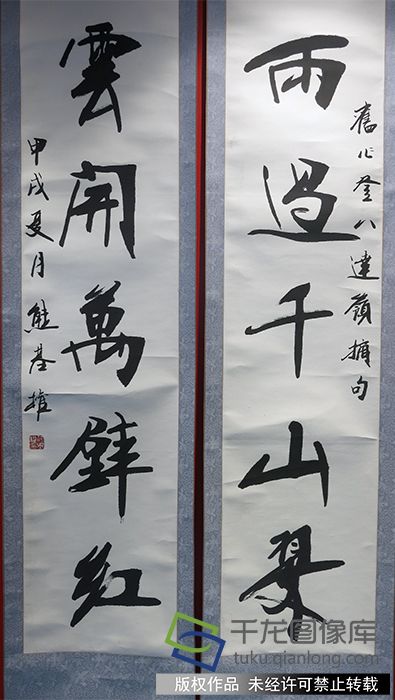 雨過千山翠
舊作登八達嶺摘句
雲開萬壁紅
甲戌夏月熊基權
千龙图像库
tuku.qianlong.com
版权作品 未经许可禁止转载